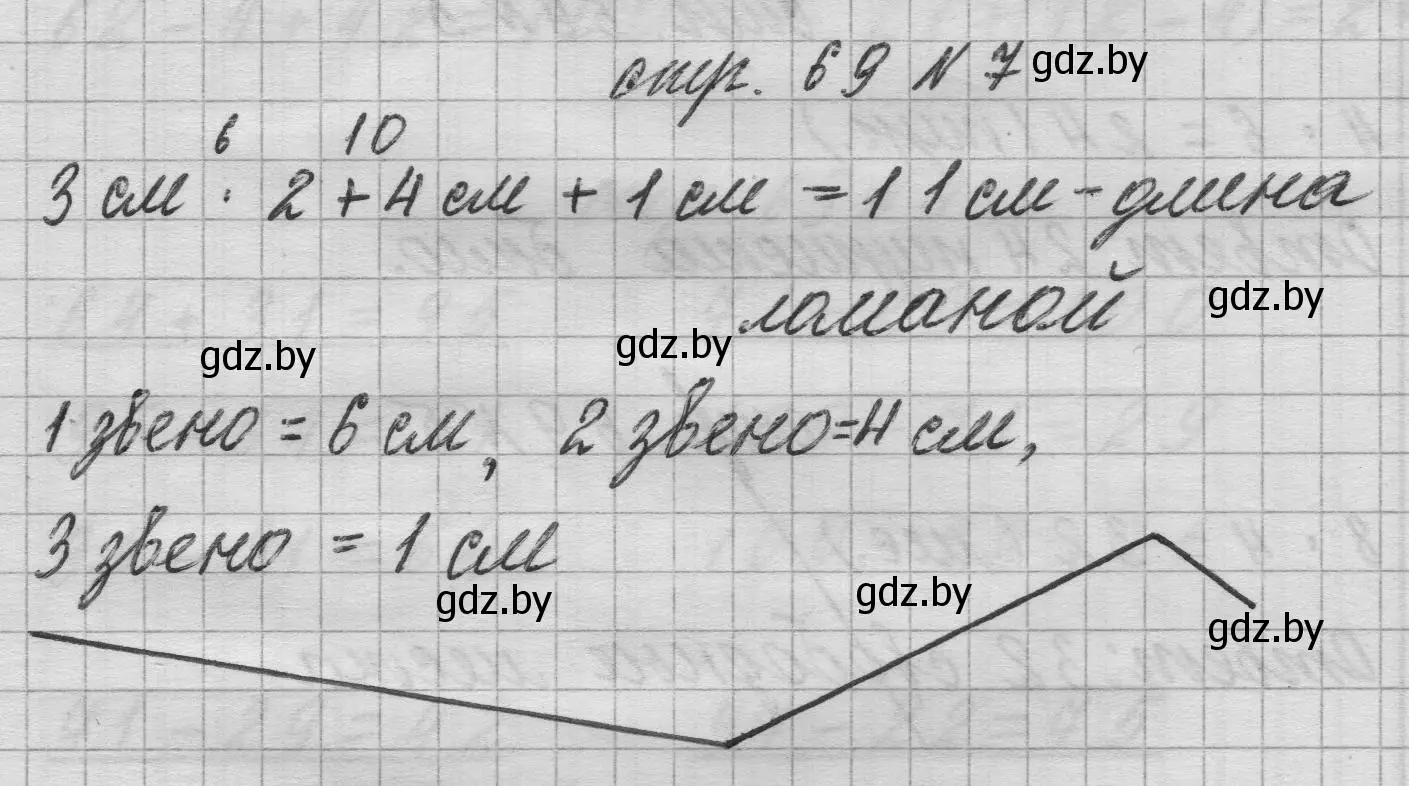 стр. 69 N 7 gdz.by
6 10
3 см · 2 + 4 см + 1 см = 11 см - длина
ломаной gdz.by
gdz.by gdz.by
1 звено = 6 см, 2 звено = 4 см,
3 звено = 1 см
gdz.by gdz.by
gdz.by